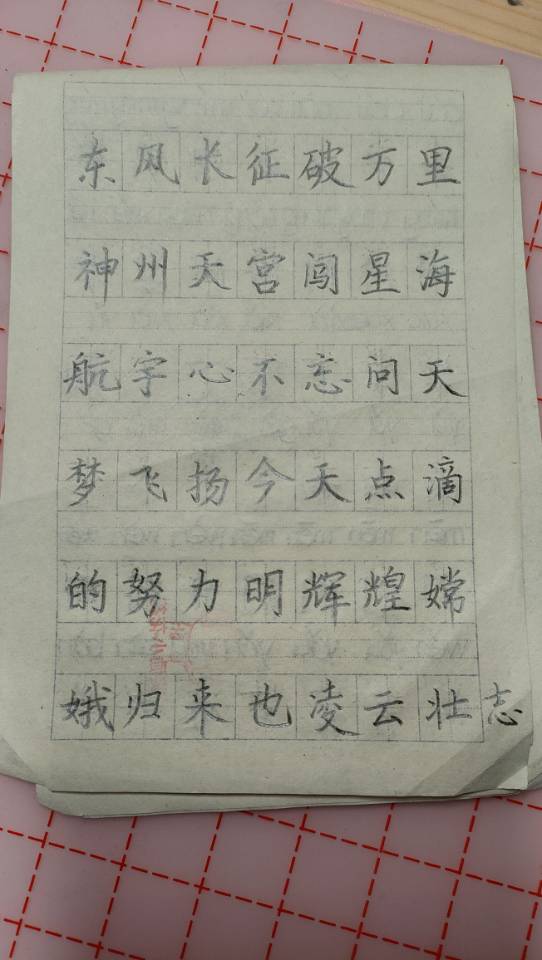 东风长征破万里
神州天宫闯星海
航宇心不忘问天
梦飞扬今天点滴
的努力明辉煌嫦
娥归来也凌云壮志